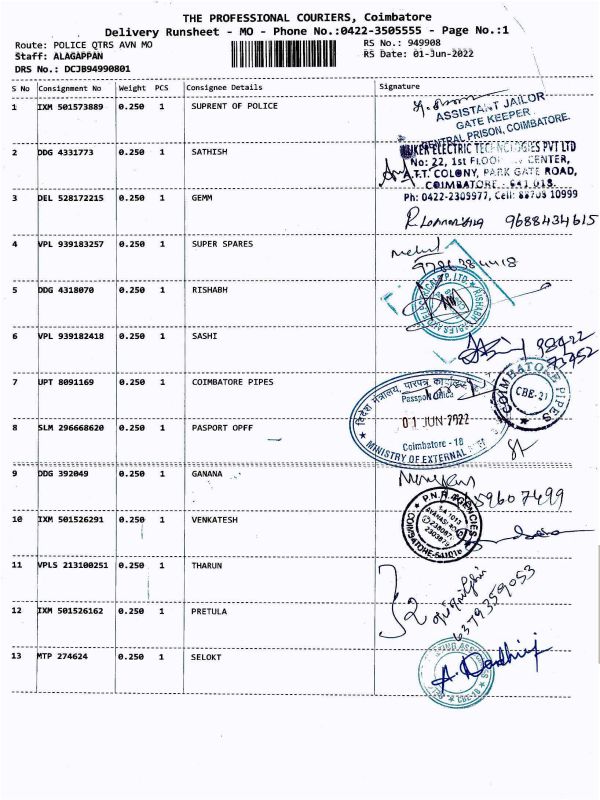 THE PROFESSIONAL COURIERS, Coimbatore
Delivery Runsheet - MO - Phone No.:0422-3505555 - Page No.:1
Route: POLICE QTRS AVN MO
RS No.: 949908
Staff: ALAGAPPAN
RS Date: 01-Jun-2022
DRS No.: DCJB94990801
S No Consignment No Weight PCS Consignee Details Signature
1 IXM 501573889 0.250 1 SUPRENT OF POLICE
ASSISTANT JAILOR
GATE KEEPER
CENTRAL PRISON, COIMBATORE.
2 DDG 4331773 0.250 1 SATHISH
ELECTRIC TECHNOLOGIES PVT LTD
No: 22, 1st FLOOR CENTER,
A.T.T. COLONY, PARK GATE ROAD,
COIMBATORE - 641 018.
3 DEL 528172215 0.250 1 GEMM
Ph: 0422-2309977, Cell: 88708 10999
9688434615
4 VPL 939183257 0.250 1 SUPER SPARES
5 DDG 4318070 0.250 1 RISHABH
6 VPL 939182418 0.250 1 SASHI
7 UPT 8091169 0.250 1 COIMBATORE PIPES
COIMBATORE PIPES
CBE-21
विदेश मंत्रालय, पारपत्र
Passport Office
01 JUN 2022
8 SLM 296668620 0.250 1 PASPORT OPFF
Coimbatore - 18
MINISTRY OF EXTERNAL
9 DDG 392049 0.250 1 GANANA
9607499
P.N.R. AGENCIES
10 IXM 501526291 0.250 1 VENKATESH
COIMBATORE-641018
11 VPLS 213100251 0.250 1 THARUN
6379359053
12 IXM 501526162 0.250 1 PRETULA
13 MTP 274624 0.250 1 SELOKT